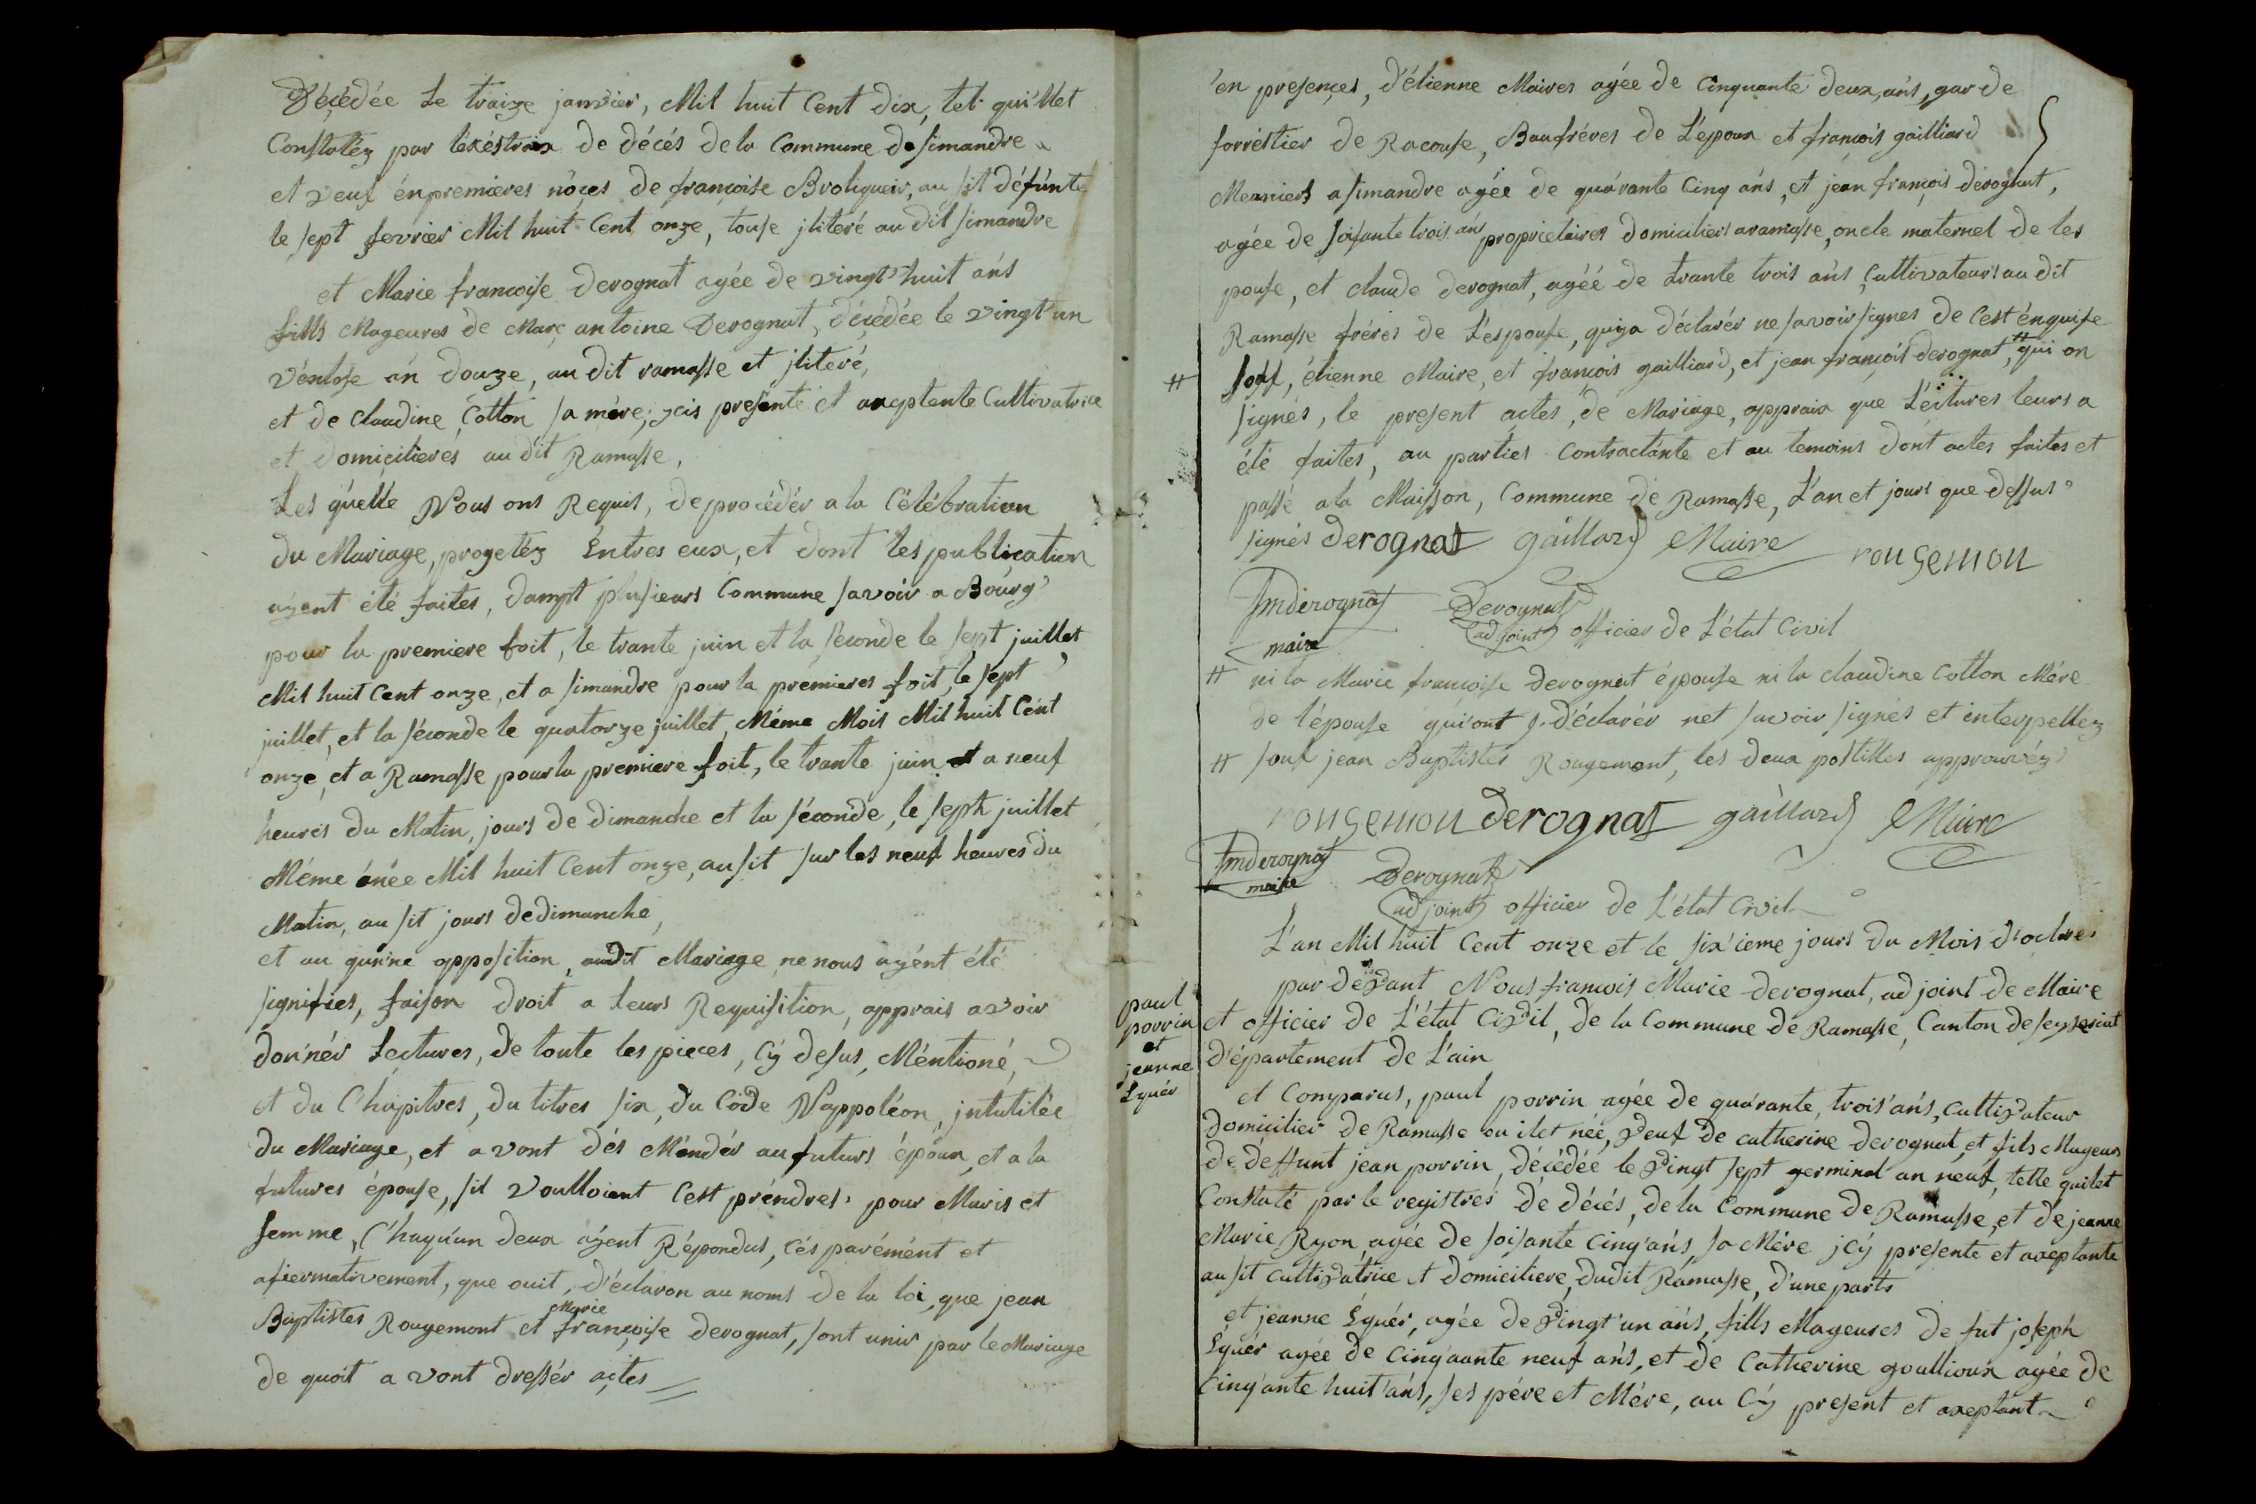 Décédée Le traize janvier, Mil huit Cent dix, tel quillet
Constatéz par lexéstraix de décés de la Commune de simandre
et veuf én premieres nóces de françoise Broliqueir, au sit défúnte
le sept fevrier Mil huit Cent onze, touse jliteré au dit simandre
et Marie françoise derognat agée de vingt huit ans
fills Mageures de Marc antoine Derognat, décédée le vingt'un
véntose án douze, au dit ramasse et jliteré,
et de Claudine Cotton sa mére, jcis presente et axeptente Cultivatrice
et domicilieres au dit Ramasse,
Les quelle Nous ons Requis, de procédér a la Célébration
du Mariage, progetéz Entres eux, et dont les publication
ayent été faites, dampt plusieurs Commune savoir a Bourg
pour la premiere foit, le trante juin et la séconde le sept juillet
Mil huit Cent onze, et a simandre pour la prémieres foit, le sept
juillet, et la séconde le quatorze juillet, Méme Mois Mil huit Cent
onze, et a Ramasse pour la premiere foit, le trante juin et a neuf
heures du Matin, jours de dimanche et la séconde, le septh juillet
Méme ánée Mil huit Cent onze, au sit sur les neuf heures du
Matin, au sit jours de dimanche,
et au qun'ne opposition audit Mariage ne nous ayént été
signifies, faison droit a leurs Requisition, apprais avoir
don'nér Lectures, de toute les pieces, Cÿ desus, Méntioné,
et du Chapitres, du titres six, du Code Nappoléon, jntutilée
du Mariage, et avont dés Méndér au futurs époux, et a la
futures épouse, sil voulloient Cest préndres pour Maris et
femme, Chaqu'un deux ayent Répondus, Cés parémént et
afiermativement, que ouit, d'éclaron au noms de la loi, que jean
Baptistes Rougemont et Marie françoise derognat, sont unir par le Mariage
de quoit avont dressér actes
en presençes, d'étienne Maires agée de Cinquante deux ans, garde
forréstier de Racouse, Baufréres de L'époux et françois gailliard
Meaniers a simandre agée de quárante Cinq áns, et jean françois dérognat,
agée de soisante trois ans propriétaires domiciliers aramasse, oncle maternel de les
pouse, et claude derognat, agéé de trante trois ans Cultivateurs au dit
Ramasse fréres de L'espouse, quiya déclarér ne savoir signes de Cest énquise
# souf, étienne Maire, et françois gailliard, et jean françois derognat, # qui on
signés, le present actes, de Mariage, appraix que Léctures leurs a
été faites, au parties Contractante et au temoins dont actes faites et
passé a la Maisson, Commune de Ramasse, L'an et jours que dessus
signés derognat gaillard Maire rougemon
fmderognat maire
Derognat adjoint officier de L'état Civil
# ni la Marie françoise derognat épouse ni la claudine Cotton Mére
de l'épouse qui ont déclarér net savoir signés et interpelléz
# souf jean Baptistes Rougemont, les deux postilles approuvéz
rougemon derognat gaillard Maire
fmderognat maire
Derognat
adjoint officier de L'état Civil
L'an Mil huit Cent onze et le six'ieme jours du Mois d'octbre
par devant Nous francois Marie derognat, adjoint de Maire
et officier de L'état Civil, de la Commune de Ramasse, Canton de seyzeriat
D'épartement de L'ain
paul
porrin
et
jeanne
Eguér
et Comparus, paul porrin agée de quarante, trois'ans, Cultivateur
domicilier de Ramasse ou ilet née, veuf de catherine derognat, et fils Mageur
de déffunt jean porrin, décédée le vingt sept germinal an neuf, telle quilet
Constaté par le registres de décés, de la Commune de Ramasse, et de jeanne
Marie Ryon, agée de soisante Cinq'ans, sa Mére jcÿ presente et axeptante
au sit cultivatrice et domiciliere, dudit Ramasse, d'une parts
et jeanne Eguér, agée de vingt'un áns, fills Mageures de fut joseph
Eguér agée de Cinq'aante neuf ans, et de Catherine goullioux agée de
Cinq'ante huit'ans, ses pére et Mére, au Cÿ present et axeptant